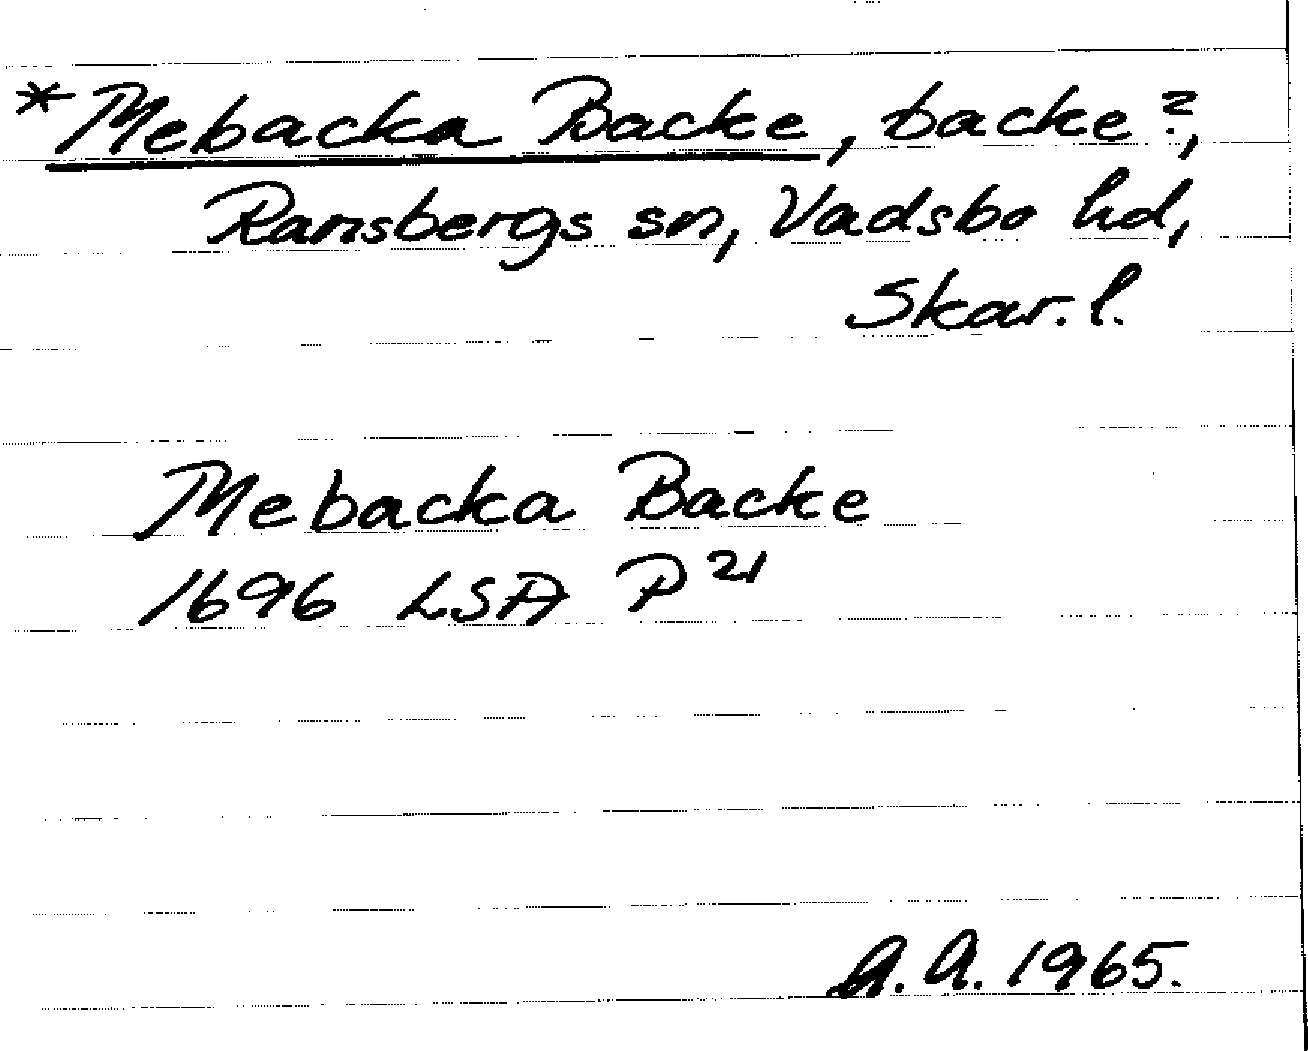 *Mebacka Backe, backe?,
Ransbergs sn, Vadsbo hd,
Skar. l.
Mebacka Backe
1696 LSA P 21
A. A. 1965.